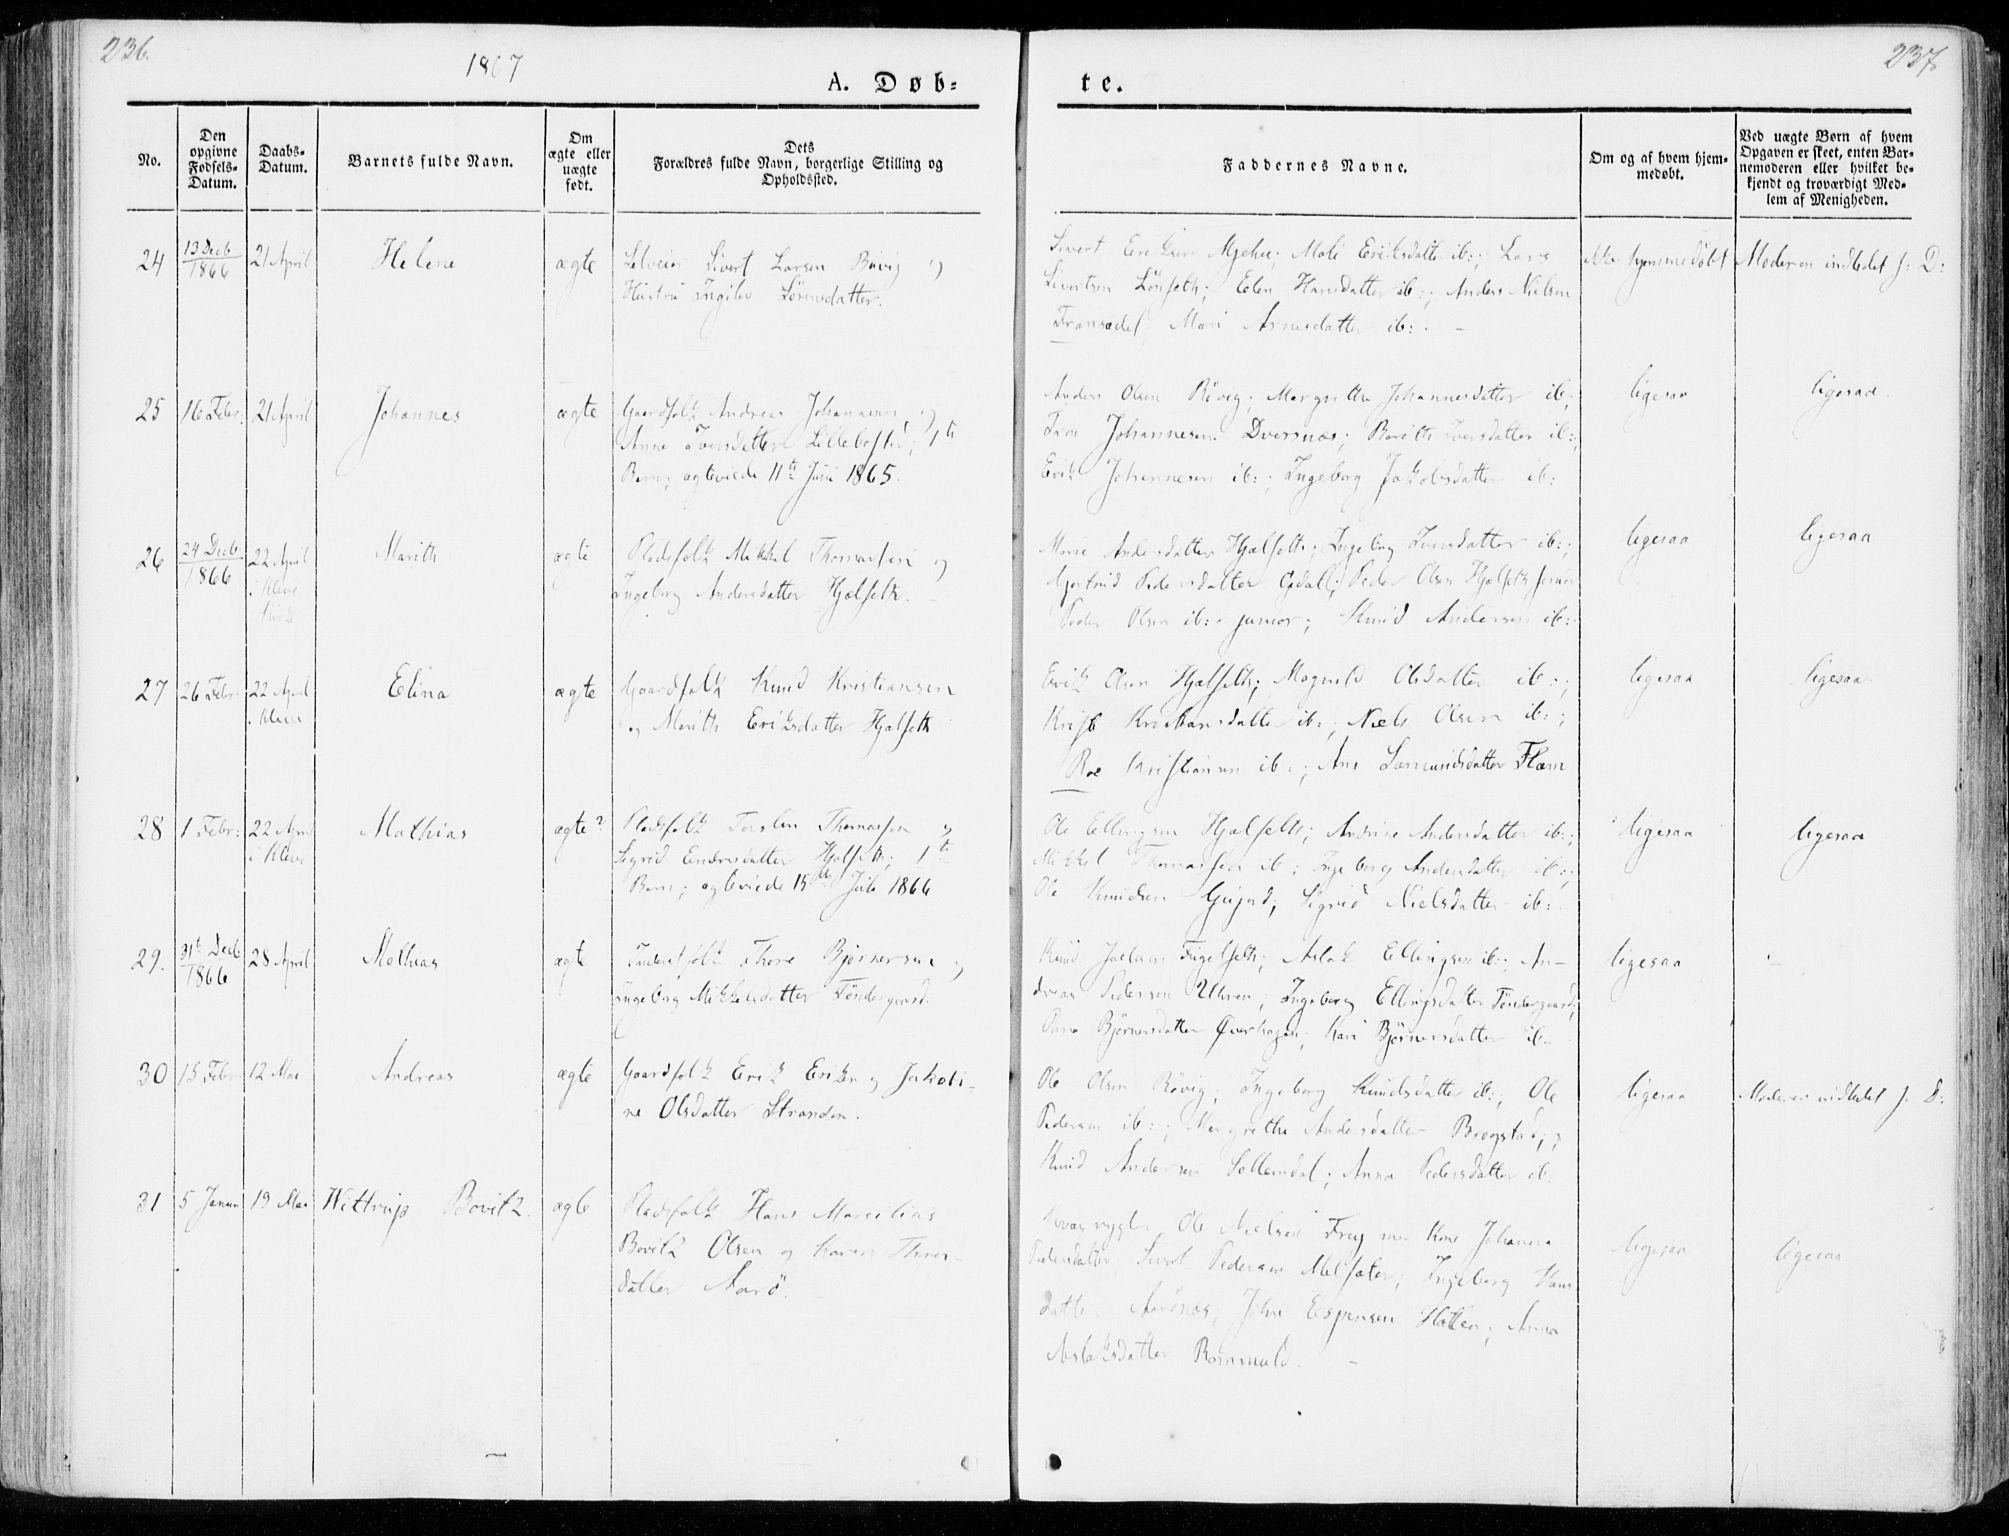 236.
1867
A. Døb-
te.
237.
No.
Den opgivne Fødsels-Datum.
Daabs-Datum.
Barnets fulde Navn.
Om ægte eller uægte født.
Dets Forældres fulde Navn, borgerlige Stilling og Opholdssted.
Faddernes Navne.
Om og af hvem hjemmedøbt.
Ved uægte Børn af hvem Opgaven er skeet, enten Barnemoderen eller hvilket bekjendt og troværdigt Medlem af Menigheden.
24 13 Decb 1866 21 April Helene ægte
Sivert Larsen Røvig og
Hustru Ingilev Sørensdatter.
Sivert Eriksen Mali Eriksdatter ib:; Lars
Sivertsen Eden Hansdatter ib:; Anders Nielsen
Mari Arnesdatter ib:
hjemmedøbt
Moderen indledet s: D:
25 16 Febr. 21 April Johannes ægte
Gaardfolk Andreas Johannesen og
Anne Iversdatter Lillebostad; 1te
Barn; ægteviede 11te Juni 1865.
Anders Olsen Røvig; Margrethe Johannesdatter ib;
Johannesen Dversnæs; Berith Iversdatter ib:
Erik Johannesen ib:; Ingeborg Jakobsdatter ib:
ligesaa
ligesaa.
26 24 Decb 1866 22 April i Kleve Kirke Marith ægte
Pladsfolk Mikkel Thomassen og
Ingeborg Andersdatter Hjelseth.
Marie Andersdatter Hjælseth; Ingeborg Iversdatter ib:;
Gjertrud Pedersdatter Peder Olsen Hjælseth senior
Peder Olsen ib: junior; Knud Andersen ib:
ligesaa
ligesaa
27 26 Febr. 22 April i Kleve Elina ægte
Gaardfolk Knud Kristiansen
og Marith Eriksdatter Hjælseth
Erik Olsen Hjælseth; Magnild Olsdatter ib:;
Kristiansdatter ib:; Niels Olsen ib:;
Roe Kristiansen ib:; Ane Flam
ligesaa
ligesaa
28 1 Febr: 22 April i Kleve Mathias ægte?
Pladsfolk Torsten Thomassen og
Sigrid Endresdatter Hjelseth; 1te
Barn; ægteviede 15de Juli 1866
Ole Ellingsen Hjælseth; Andrine Andersdatter ib:;
Mikkel Thomassen ib; Ingeborg Andersdatter ib:;
Ole Knudsen Gujord; Sigrid Nielsdatter ib:
ligesaa
ligesaa
29. 31te Decb 1866 28 April Mathias ægte
Thore Bjørnersen og
Ingeborg Mikkelsdatter Tøndergaard.
Knud Joelsen Fugelseth; Aslak Ellingsen ib:; An-
dreas Pedersen Uhren; Ingeborg Ellingsdatter Tøndergaard;
Bjørnersdatter Øverhagen; Kari Bjørnersdatter ib:
ligesaa
30 15 Febr 12 Mai Andreas ægte
Gaardfolk Erik Eriksen og Jakobi-
ne Olsdatter Stranden.
Ole Olsen Røvig; Ingeborg Knudsdatter ib:; Ole
Pedersen ib:; Margrethe Andersdatter Bregstad;
Knud Andersen Sollemdal; Anna Pedersdatter ib.
ligesaa
Moderen indledet s. D:
31 5 Januar 19 Mai Wittrup Bovitz ægte
Pladsfolk Hans Marcilius
Bovitz Olsen og Karen Thores-
datter Aarö.
Ole Nielsen Frey med Kone Johanna
Pedersdatter; Sivert Pedersen Melsæter; Ingeborg Hans
datter Aarönæs; John Espensen Hatlen; Anna
Aslaksdatter
ligesaa
ligesaa